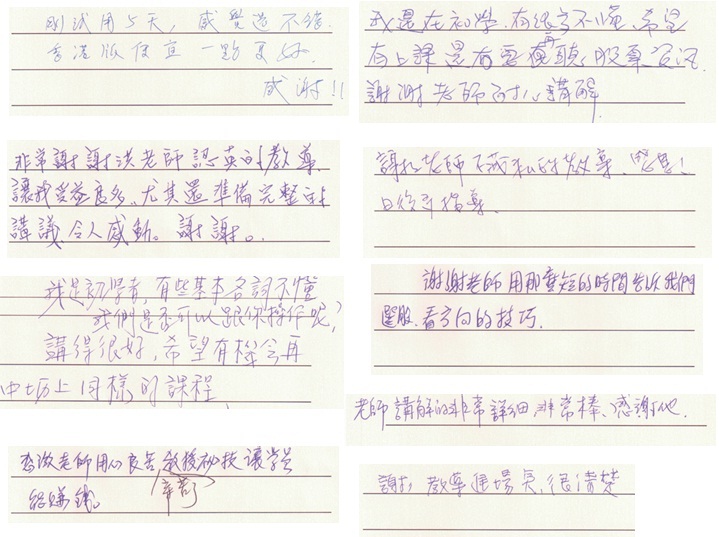 剛試用5天，感覺還不錯。
希望版便宜一點更好。
感謝!!
非常謝謝洪老師認真的教導
讓我受益良多、尤其還準備完整的
講議、令人感動。謝謝。
我是初學者，有些基本名詞不懂
我們是否可以跟你操作呢？
講得很好，希望有機會再
中坜上同樣的課程
老師用心良苦教授秘技讓學員
賺錢。
辛苦了
我還在初學，有很多不懂，希望
有上課還有要再聽，股票
謝謝老師耐心講解
謝謝老師不藏私的教導、感恩！
日後再指導。
謝謝老師用那麼短的時間告訴我們
選股、看方向的技巧.
老師講解的非常詳細、非常棒、感謝他.
謝謝教導進場 很清楚